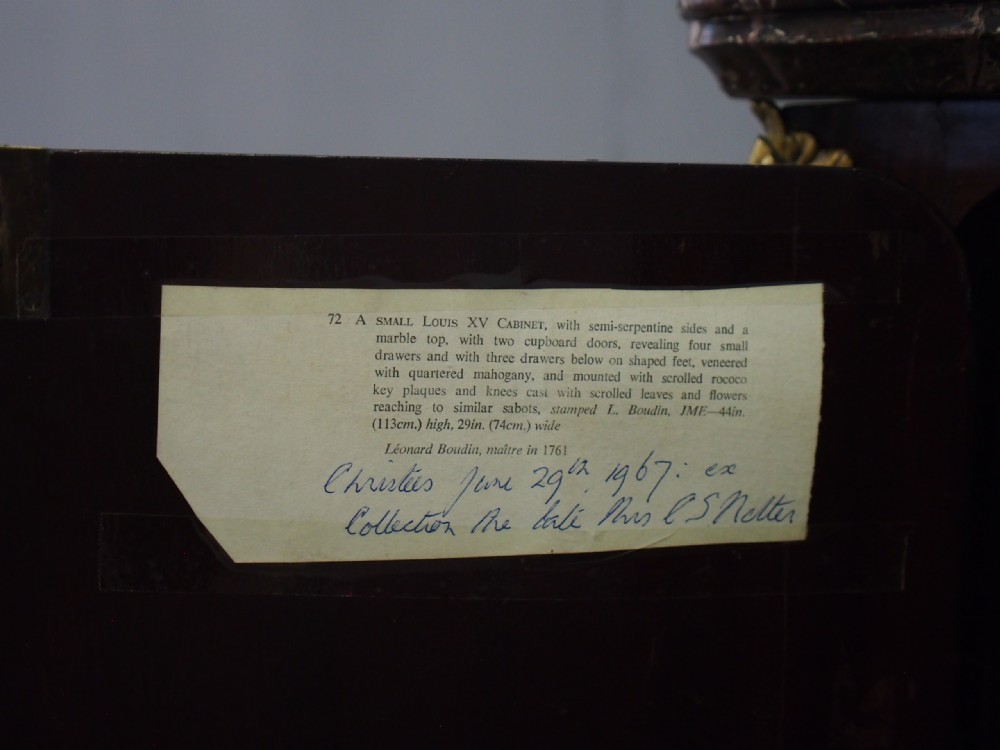 72 A SMALL LOUIS XV CABINET, with semi-serpentine sides and a
marble top, with two cupboard doors, revealing four small
drawers and with three drawers below on shaped feet, veneered
with quartered mahogany, and mounted with scrolled rococo
key plaques and knees cast with scrolled leaves and flowers
reaching to similar sabots, stamped L. Boudin, JME—44in.
(113cm.) high, 29in. (74cm.) wide
Léonard Boudin, maître in 1761
Christies June 29th 1967: ex
Collection the late Mrs C S Netter